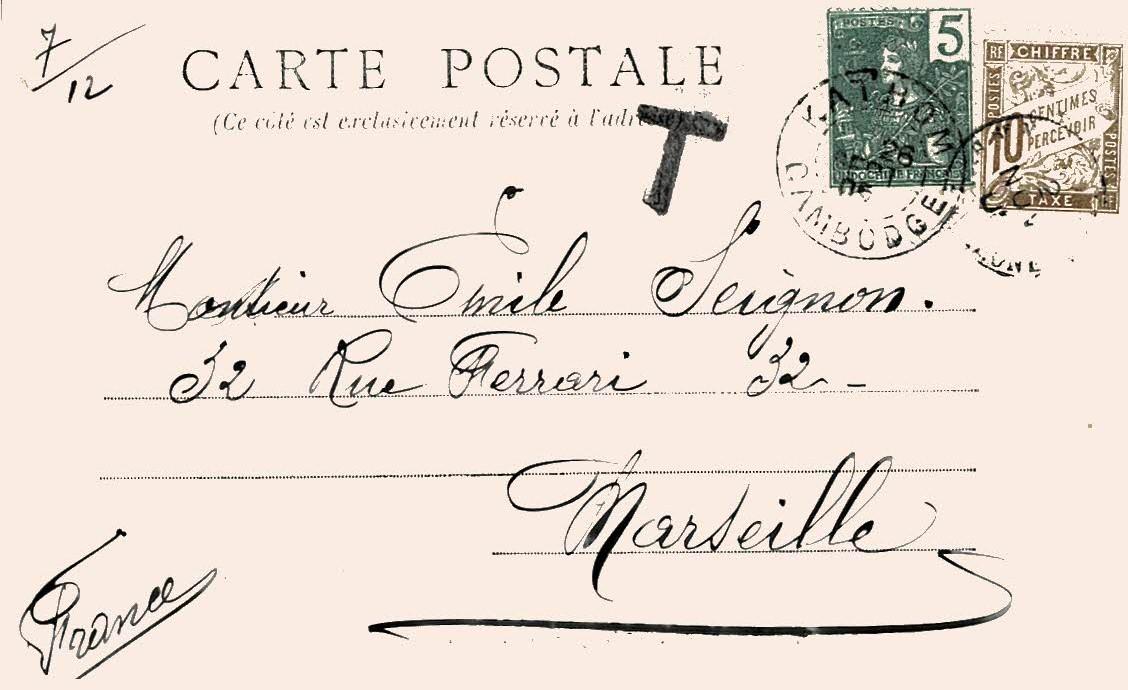 7/12
CARTE POSTALE
(Ce côté est exclusivement réservé à l'adresse)
T
POSTES 5
INDOCHINE FRANÇAISE
KATHOM
CAMBODGE
RF CHIFFRE
POSTES
10 CENTIMES
PERCEVOIR
POSTES
TAXE
Monsieur Emile Seignon.
32 Rue Ferrari 32 -
Marseille
France